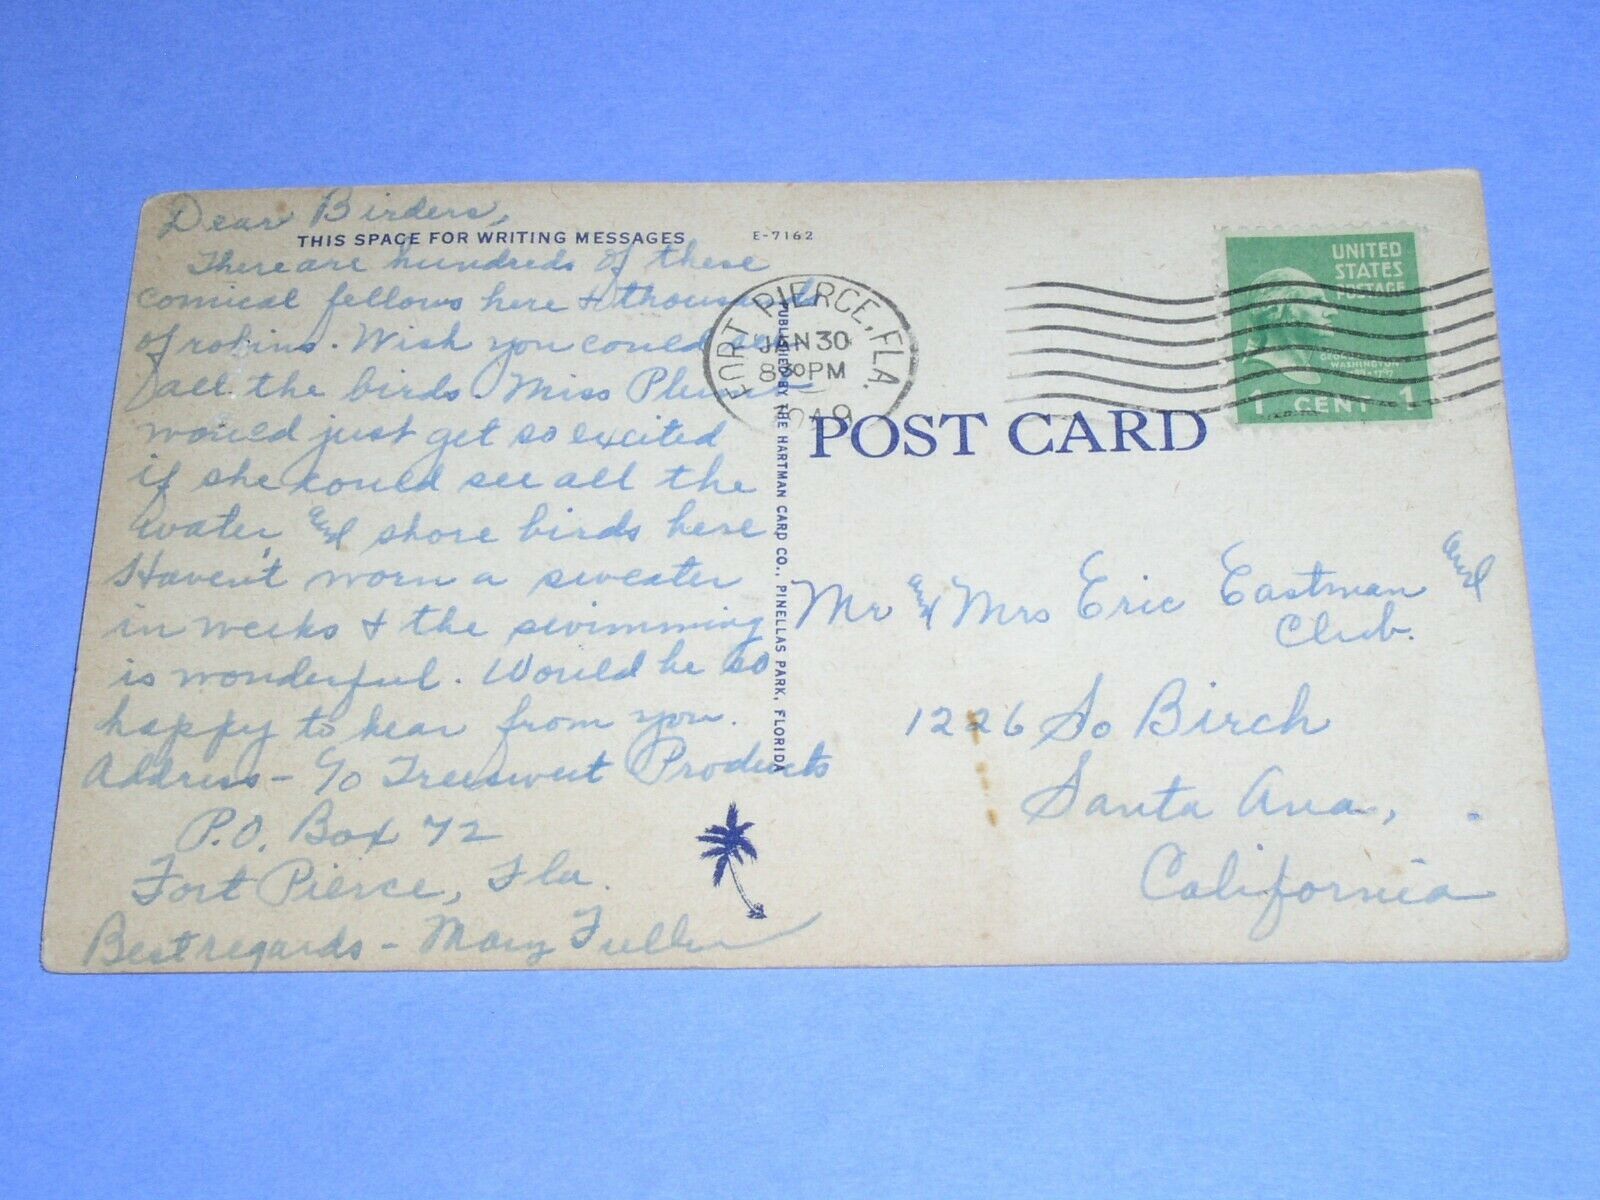 Dear Birders,
THIS SPACE FOR WRITING MESSAGES
E-7162
There are hundreds of these
comical fellows here & thousands
of robins. Wish you could see
all the birds. Miss
would just get so excited
if she could see all the
water and shore birds here
Haven't worn a sweater
in weeks & the swimming
is wonderful. Would be so
happy to hear from you.
Address - c/o Treesweet Products
P.O. Box 72
Fort Pierce, Fla.
Best regards - Mary Fuller
PUBLISHED BY THE HARTMAN CARD CO., PINELLAS PARK, FLORIDA
FORT PIERCE, FLA.
JAN 30
8 30 PM
UNITED
STATES
POSTAGE
GEORGE
WASHINGTON
1 CENT 1
POST CARD
Mr and Mrs Eric Eastman and
Club.
1226 So Birch
Santa Ana,
California